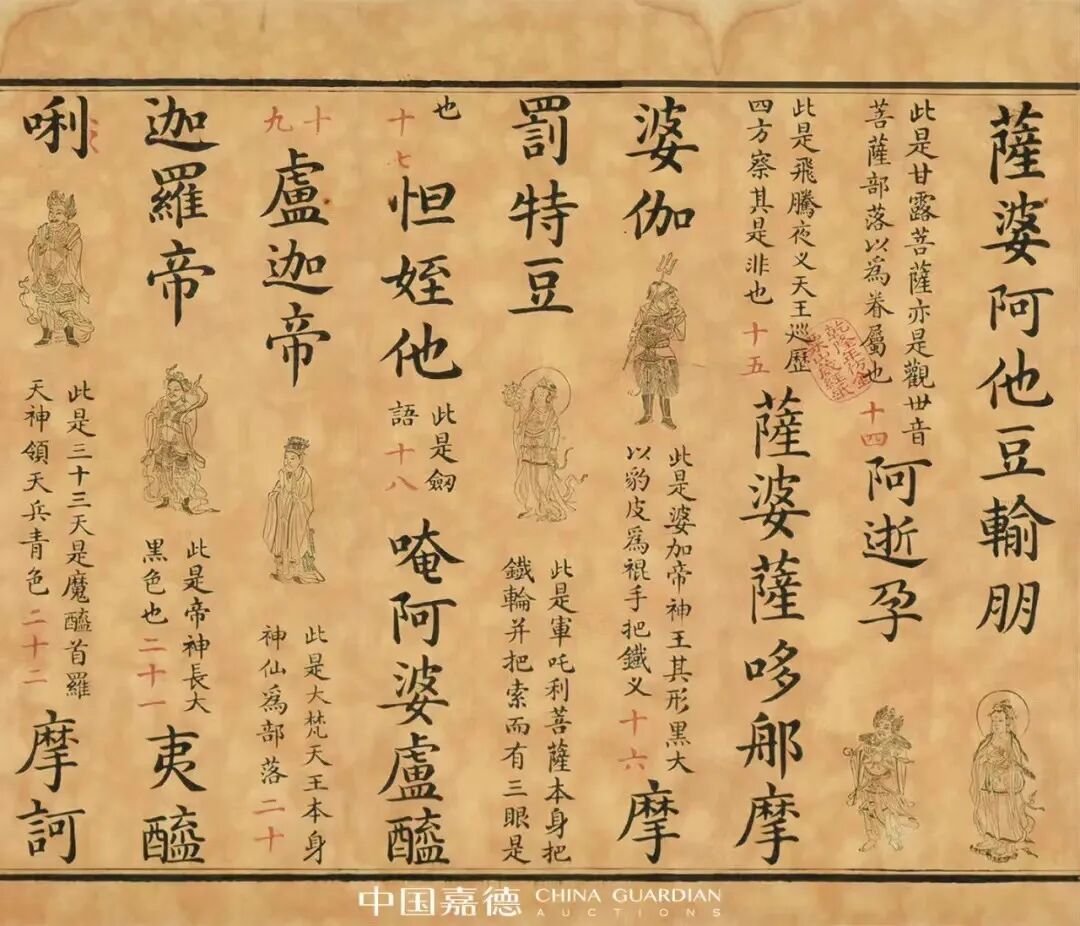 薩婆阿他豆輸朋
此是甘露菩薩亦是觀世音
菩薩部落以爲眷屬也 十四
阿逝孕
此是飛騰夜义天王巡歷
四方察其是非也 十五
薩婆薩哆那摩
婆伽
此是婆加帝神王其形黑大
以豹皮爲裩手把鐵义 十六
摩
罰特豆
此是軍吒利菩薩本身把
鐵輪并把索而有三眼是
也
十七
怛姪他
此是劔
語 十八
唵阿婆盧醯
十九
盧迦帝
此是大梵天王本身
神仙爲部落 二十
迦羅帝
此是帝神長大
黑色也 二十一
夷醯
唎
此是三十三天是魔醯首羅
天神領天兵青色 二十二
摩訶
乾隆年仿金
粟山藏經紙
中国嘉德 CHINA GUARDIAN
AUCTIONS